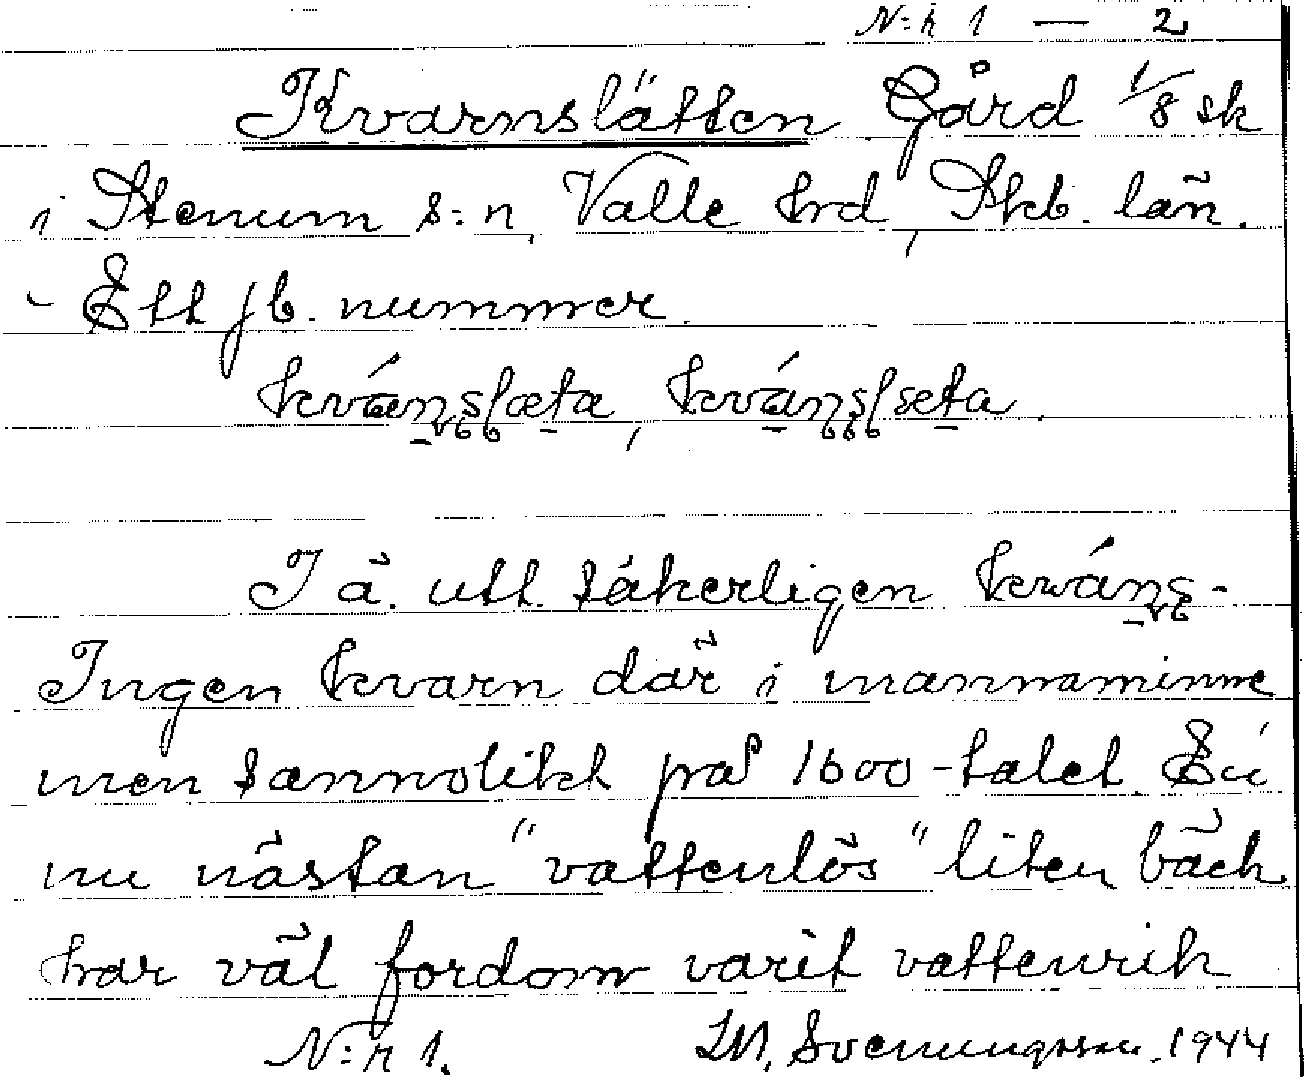 N:r 1 — 2
Kvarnslätten Gård 1/8 sk
i Stenum s:n, Valle hrd, Skb. län.
- Ett jb. nummer.
I ä. utt. säkerligen
Ingen kvarn där i mannaminne
men sannolikt på 1600-talet. En
nu nästan "vattenlös" liten bäck
har väl fordom varit vattenrik
N:r 1. M. Svenungsson 1944